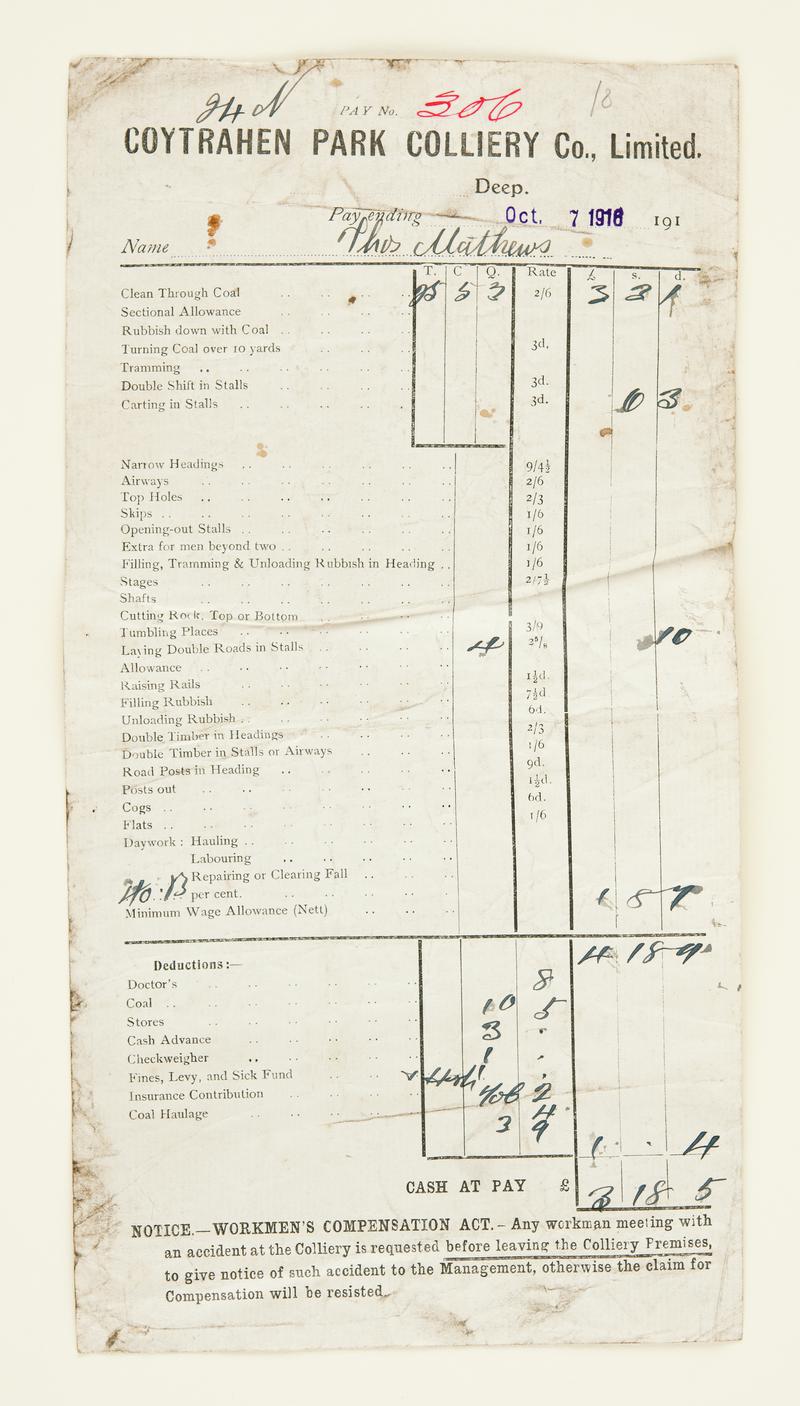 PAY No. 306 18
COYTRAHEN PARK COLLIERY Co., Limited.
Deep.
Pay ending Oct. 7 1916 191
Name Thos Mathews
T. C Q. Rate £ s. d.
Clean Through Coal 25 5 3 2/6 3 3 1
Sectional Allowance
Rubbish down with Coal
Turning Coal over 10 yards 3d.
Tramming
Double Shift in Stalls 3d.
Carting in Stalls 3d. 3
Narrow Headings 9/4½
Airways 2/6
Top Holes 2/3
Skips 1/6
Opening-out Stalls 1/6
Extra for men beyond two 1/6
Filling, Tramming & Unloading Rubbish in Heading 1/6
Stages 2/7½
Shafts
Cutting Rock, Top or Bottom
Tumbling Places 3/9
Laying Double Roads in Stalls 4 2⁵/₈ 10
Allowance
Raising Rails 1½d.
Filling Rubbish 7½d
Unloading Rubbish 6d.
Double Timber in Headings 2/3
Double Timber in Stalls or Airways 1/6
Road Posts in Heading 9d.
Posts out 1½d.
Cogs 6d.
Flats 1/6
Daywork : Hauling
Labouring
Repairing or Clearing Fall
per cent. 1 8 7
Minimum Wage Allowance (Nett)
4 18 9
Deductions :—
Doctor's 8
Coal 10 5
Stores 3
Cash Advance
Checkweigher 1
Fines, Levy, and Sick Fund
Insurance Contribution 2
Coal Haulage 3 4
9
1 . 4
CASH AT PAY £ 3 18 5
NOTICE.—WORKMEN'S COMPENSATION ACT.- Any workman meeting with
an accident at the Colliery is requested before leaving the Colliery Premises,
to give notice of such accident to the Management, otherwise the claim for
Compensation will be resisted.